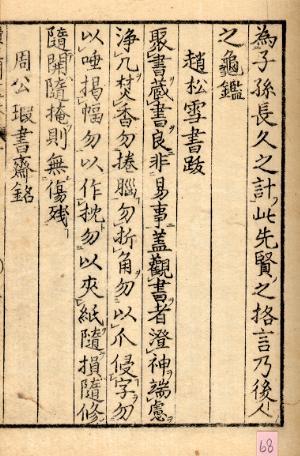 為子孫長久之計此先賢之格言乃後人
之龜鑑
趙松雪書跋
聚書蔵書良非易事蓋觀書者澄神端慮
浄几焚香勿捲腦勿折角勿以爪侵字勿
以唾揭幅勿以作枕勿以夾紙隨損隨修
隨開隨掩則無傷残
周公瑕書齋銘
68